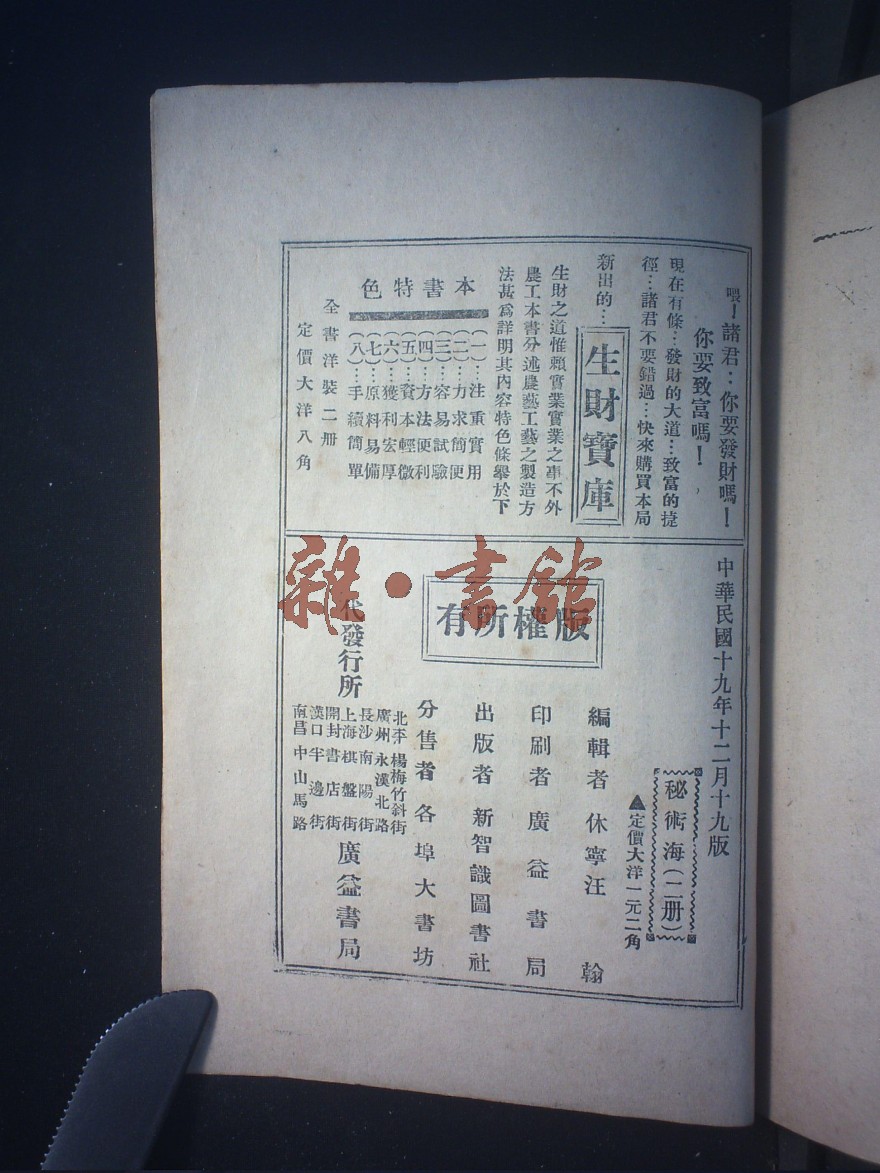 喂！諸君：你要發財嗎！
你要致富嗎！
現在有條…發財的大道…致富的捷
徑…諸君不要錯過…快來購買本局
新出的…
生財寶庫
生財之道惟賴實業實業之事不外
農工本書分述農藝工藝之製造方
法甚爲詳明其內容特色條舉於下
本書特色
（一）…注重實用
（二）…力求簡便
（三）…容易試驗
（四）…方法便利
（五）…資本輕微
（六）…獲利宏厚
（七）…原料易備
（八）…手續簡單
全書洋裝二册
定價大洋八角
中華民國十九年十二月十九版
秘術海（二册）
▲定價大洋一元二角
版權所有
編輯者 休寧汪翰
印刷者 廣益書局
出版者 新智識圖書社
分售者 各埠大書坊
代發行所
北平楊梅竹斜街
廣州永漢北路
長沙南陽街
上海棋盤街
開封書店街
漢口半邊街
南昌中山馬路
廣益書局
雜·書館